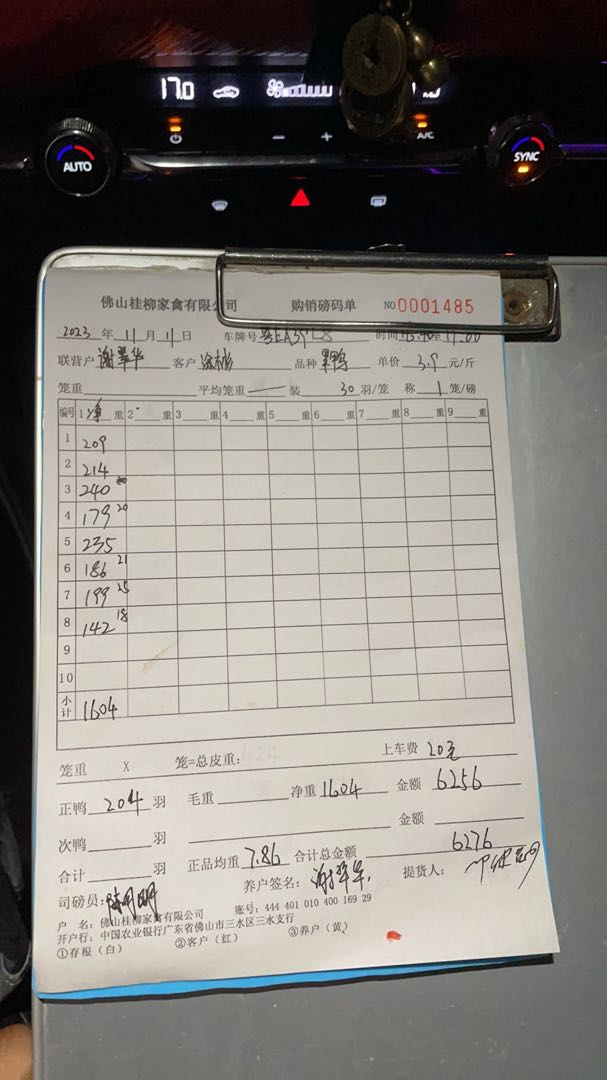 17.0
AUTO
A/C
SYNC
佛山桂柳家禽有限公司 购销磅码单 NO 0001485
2023 年 11 月 11 日 车牌号 时间 至 17:00
联营户 谢翠华 客户 涂彬 品种 单价 3.9 元/斤
笼重 平均笼重 装 30 羽/笼 称 1 笼/磅
编号 1 净 重 2 重 3 重 4 重 5 重 6 重 7 重 8 重 9 重
1 209
2 214
3 240
4 179 20
5 235
6 186 21
7 199 25
8 142 18
9
10
小计 1604
笼重 X 笼=总皮重: 上车费 20元
正鸭 204 羽 毛重 净重 1604 金额 6256
次鸭 羽 金额
合计 羽 正品均重 7.86 合计总金额 6276
司磅员: 养户签名: 谢翠华 提货人:
户 名: 佛山桂柳家禽有限公司 账号: 444 401 010 400 169 29
开户行: 中国农业银行广东省佛山市三水区三水支行
①存根(白) ②客户(红) ③养户(黄)